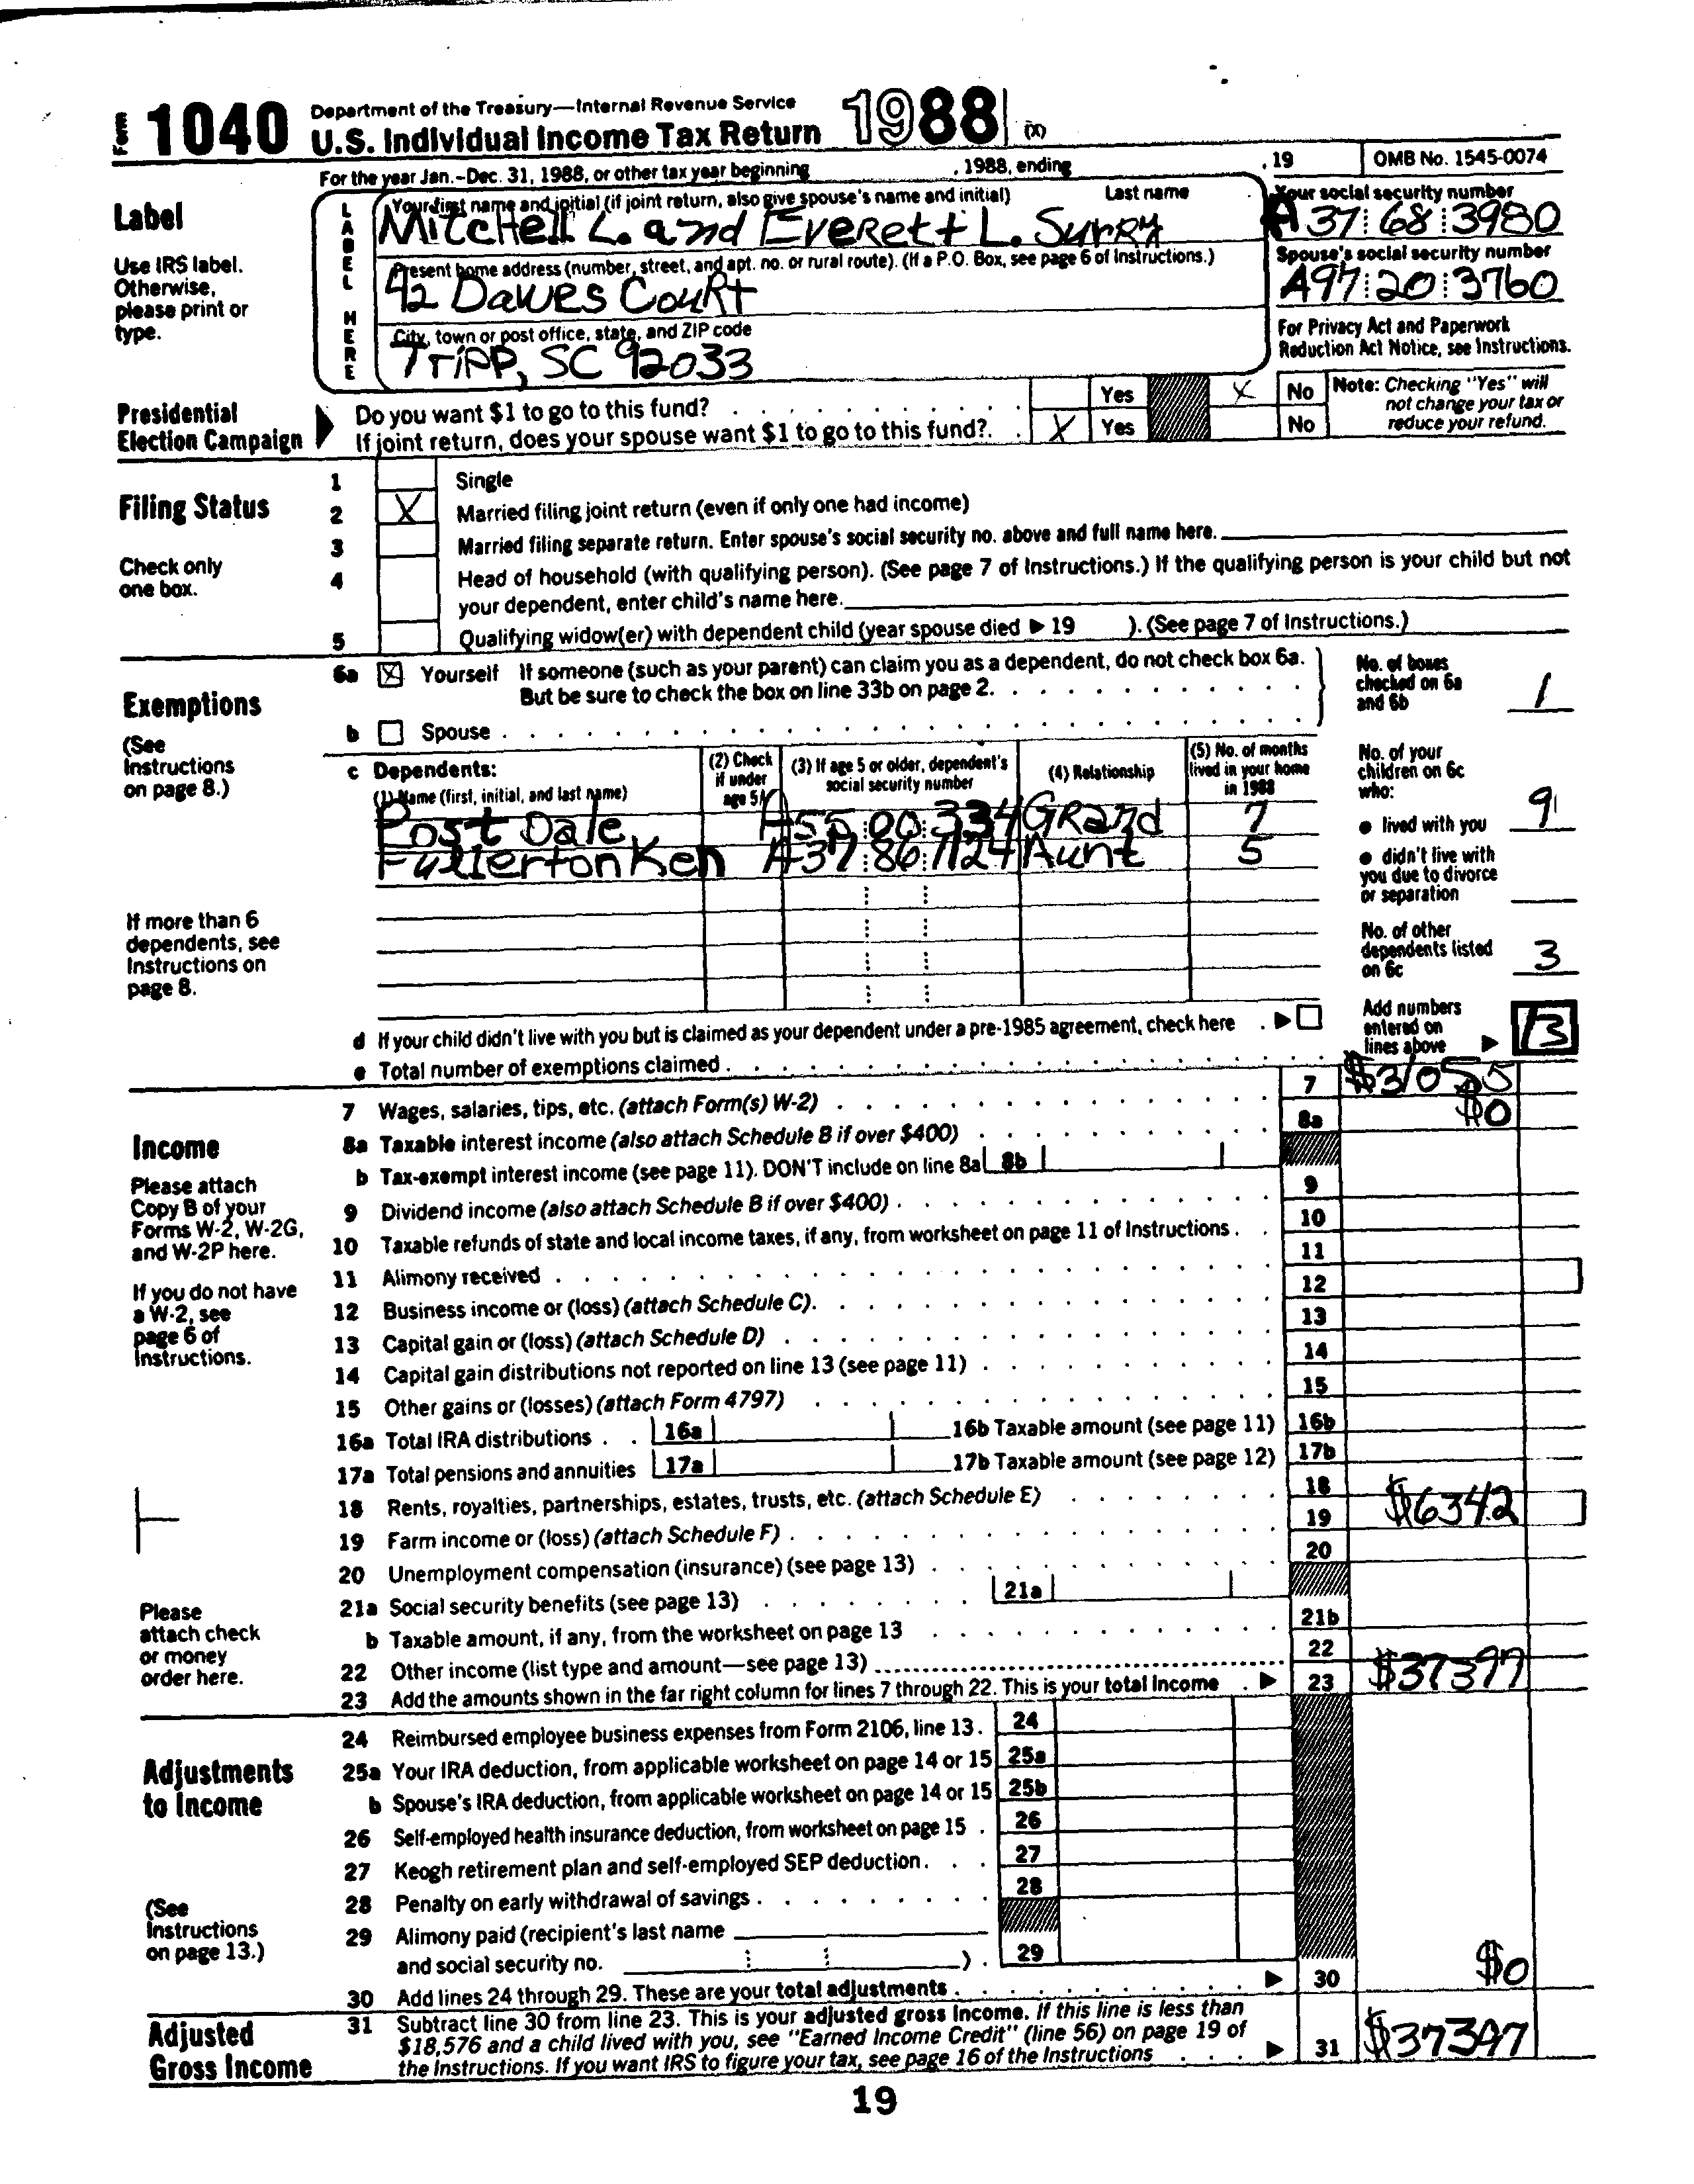 Form 1040 Department of the Treasury—Internal Revenue Service
U.S. Individual Income Tax Return 1988 (X)
For the year Jan.–Dec. 31, 1988, or other tax year beginning , 1988, ending , 19 OMB No. 1545-0074
Label
Use IRS label.
Otherwise,
please print or
type.
LABEL HERE
Your first name and initial (if joint return, also give spouse's name and initial) Last name
Mitchell L. and Everett L. Surry
Your social security number
A37 68 3980
Present home address (number, street, and apt. no. or rural route). (If a P.O. Box, see page 6 of Instructions.)
42 Dawes Court
Spouse's social security number
A97 20 3760
City, town or post office, state, and ZIP code
Tripp, SC 92033
For Privacy Act and Paperwork
Reduction Act Notice, see Instructions.
Presidential
Election Campaign
Do you want $1 to go to this fund? Yes X No
If joint return, does your spouse want $1 to go to this fund? X Yes No
Note: Checking "Yes" will
not change your tax or
reduce your refund.
Filing Status
Check only
one box.
1 Single
2 X Married filing joint return (even if only one had income)
3 Married filing separate return. Enter spouse's social security no. above and full name here.
4 Head of household (with qualifying person). (See page 7 of Instructions.) If the qualifying person is your child but not
your dependent, enter child's name here.
5 Qualifying widow(er) with dependent child (year spouse died ▶ 19 ). (See page 7 of Instructions.)
Exemptions
(See
Instructions
on page 8.)
If more than 6
dependents, see
Instructions on
page 8.
6a X Yourself If someone (such as your parent) can claim you as a dependent, do not check box 6a.
But be sure to check the box on line 33b on page 2.
b Spouse
No. of boxes
checked on 6a
and 6b 1
c Dependents:
(1) Name (first, initial, and last name)
(2) Check
if under
age 5
(3) If age 5 or older, dependent's
social security number
(4) Relationship
(5) No. of months
lived in your home
in 1988
Post Dale A55 00 334 Grand 7
Fullerton Ken A37 86 1124 Aunt 5
No. of your
children on 6c
who:
● lived with you 9
● didn't live with
you due to divorce
or separation
No. of other
dependents listed
on 6c 3
d If your child didn't live with you but is claimed as your dependent under a pre-1985 agreement, check here ▶
e Total number of exemptions claimed
Add numbers
entered on
lines above ▶ 13
Income
Please attach
Copy B of your
Forms W-2, W-2G,
and W-2P here.
If you do not have
a W-2, see
page 6 of
Instructions.
Please
attach check
or money
order here.
7 Wages, salaries, tips, etc. (attach Form(s) W-2) 7 $31055
8a Taxable interest income (also attach Schedule B if over $400) 8a $0
b Tax-exempt interest income (see page 11). DON'T include on line 8a 8b
9 Dividend income (also attach Schedule B if over $400) 9
10 Taxable refunds of state and local income taxes, if any, from worksheet on page 11 of Instructions 10
11 Alimony received 11
12 Business income or (loss) (attach Schedule C) 12
13 Capital gain or (loss) (attach Schedule D) 13
14 Capital gain distributions not reported on line 13 (see page 11) 14
15 Other gains or (losses) (attach Form 4797) 15
16a Total IRA distributions 16a 16b Taxable amount (see page 11) 16b
17a Total pensions and annuities 17a 17b Taxable amount (see page 12) 17b
18 Rents, royalties, partnerships, estates, trusts, etc. (attach Schedule E) 18
19 Farm income or (loss) (attach Schedule F) 19 $6342
20 Unemployment compensation (insurance) (see page 13) 20
21a Social security benefits (see page 13) 21a
b Taxable amount, if any, from the worksheet on page 13 21b
22 Other income (list type and amount—see page 13) 22
23 Add the amounts shown in the far right column for lines 7 through 22. This is your total income ▶ 23 $37397
Adjustments
to Income
(See
Instructions
on page 13.)
24 Reimbursed employee business expenses from Form 2106, line 13. 24
25a Your IRA deduction, from applicable worksheet on page 14 or 15 25a
b Spouse's IRA deduction, from applicable worksheet on page 14 or 15 25b
26 Self-employed health insurance deduction, from worksheet on page 15 26
27 Keogh retirement plan and self-employed SEP deduction 27
28 Penalty on early withdrawal of savings 28
29 Alimony paid (recipient's last name
and social security no. ) 29
30 Add lines 24 through 29. These are your total adjustments ▶ 30 $0
Adjusted
Gross Income
31 Subtract line 30 from line 23. This is your adjusted gross income. If this line is less than
$18,576 and a child lived with you, see "Earned Income Credit" (line 56) on page 19 of
the Instructions. If you want IRS to figure your tax, see page 16 of the Instructions ▶ 31 $37397
19